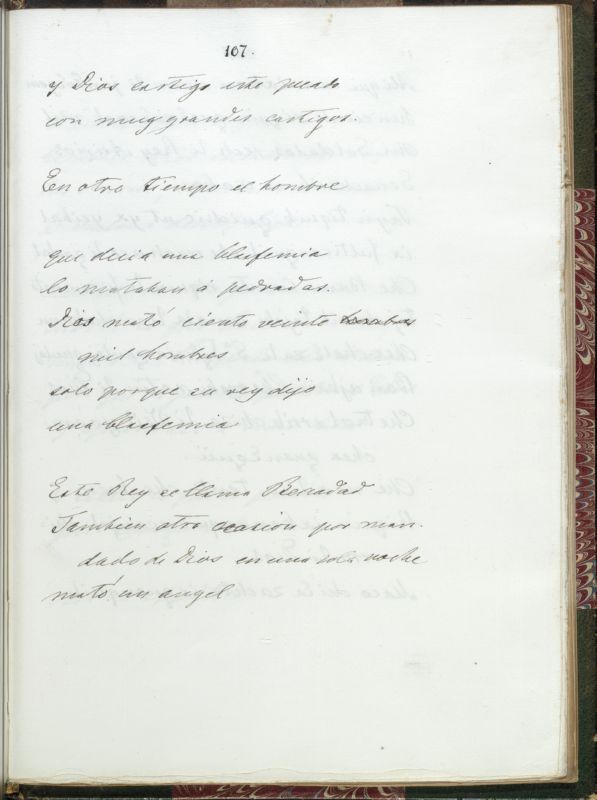 107.
y Dios castiga este pecado
con muy grandes castigos.
En otro tiempo el hombre
que decia una blasfemia
lo mataban á pedradas.
Dios mató ciento veinte hombres
mil hombres
solo porque su rey dijo
una blasfemia
Este Rey se llama Benadad
Tambien otra ocasion por man-
dado de Dios en una sola noche
mató un angel